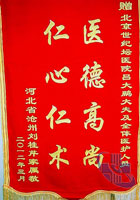 赠
北京世纪坛医院吕大鹏大夫及全体医护人员
医德高尚
仁心仁术
河北省沧州刘桂芹家属敬
二〇一二年三月